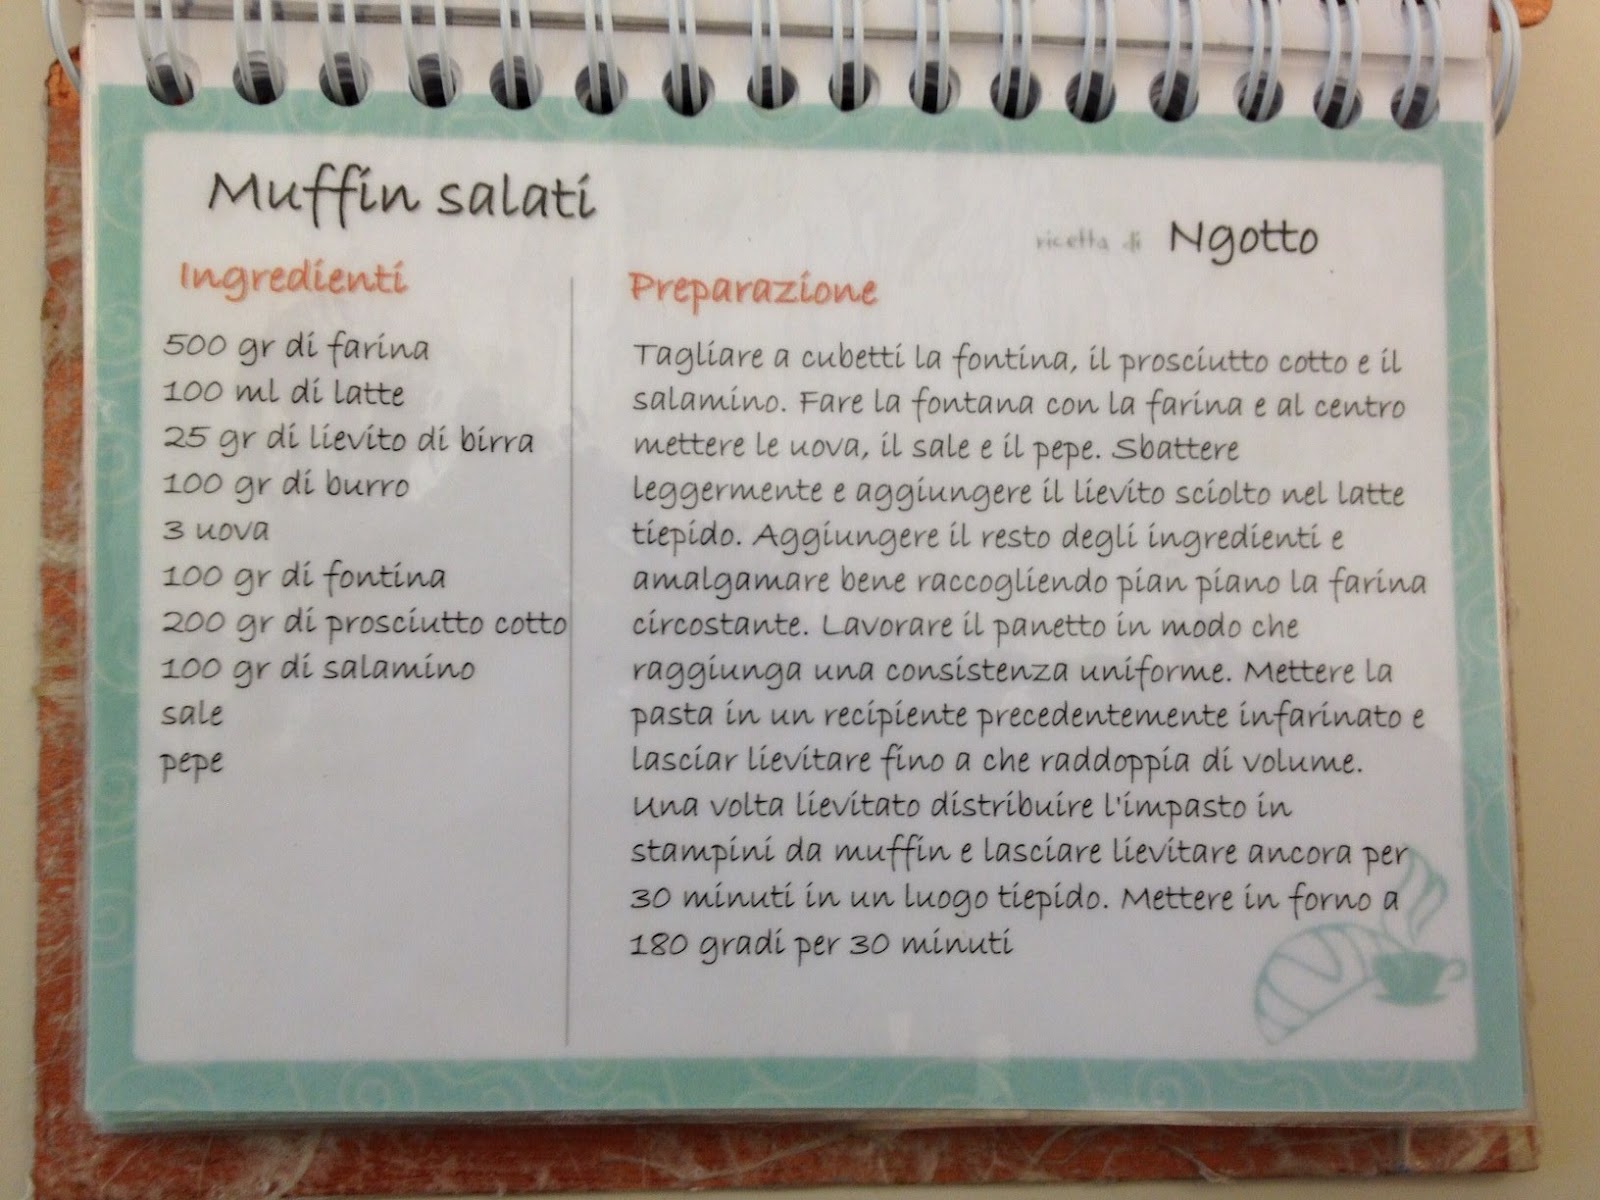 Muffin salati
ricetta di Ngotto
Ingredienti
500 gr di farina
100 ml di latte
25 gr di lievito di birra
100 gr di burro
3 uova
100 gr di fontina
200 gr di prosciutto cotto
100 gr di salamino
sale
pepe
Preparazione
Tagliare a cubetti la fontina, il prosciutto cotto e il
salamino. Fare la fontana con la farina e al centro
mettere le uova, il sale e il pepe. Sbattere
leggermente e aggiungere il lievito sciolto nel latte
tiepido. Aggiungere il resto degli ingredienti e
amalgamare bene raccogliendo pian piano la farina
circostante. Lavorare il panetto in modo che
raggiunga una consistenza uniforme. Mettere la
pasta in un recipiente precedentemente infarinato e
lasciar lievitare fino a che raddoppia di volume.
Una volta lievitato distribuire l'impasto in
stampini da muffin e lasciare lievitare ancora per
30 minuti in un luogo tiepido. Mettere in forno a
180 gradi per 30 minuti